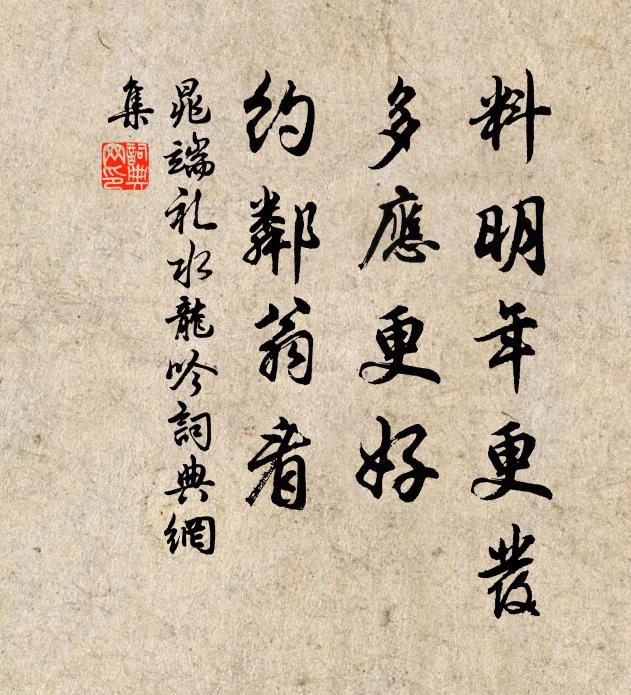 料明年更發
多應更好
約鄰翁看
晁端礼水龍吟詞典網
集
詞典
网印